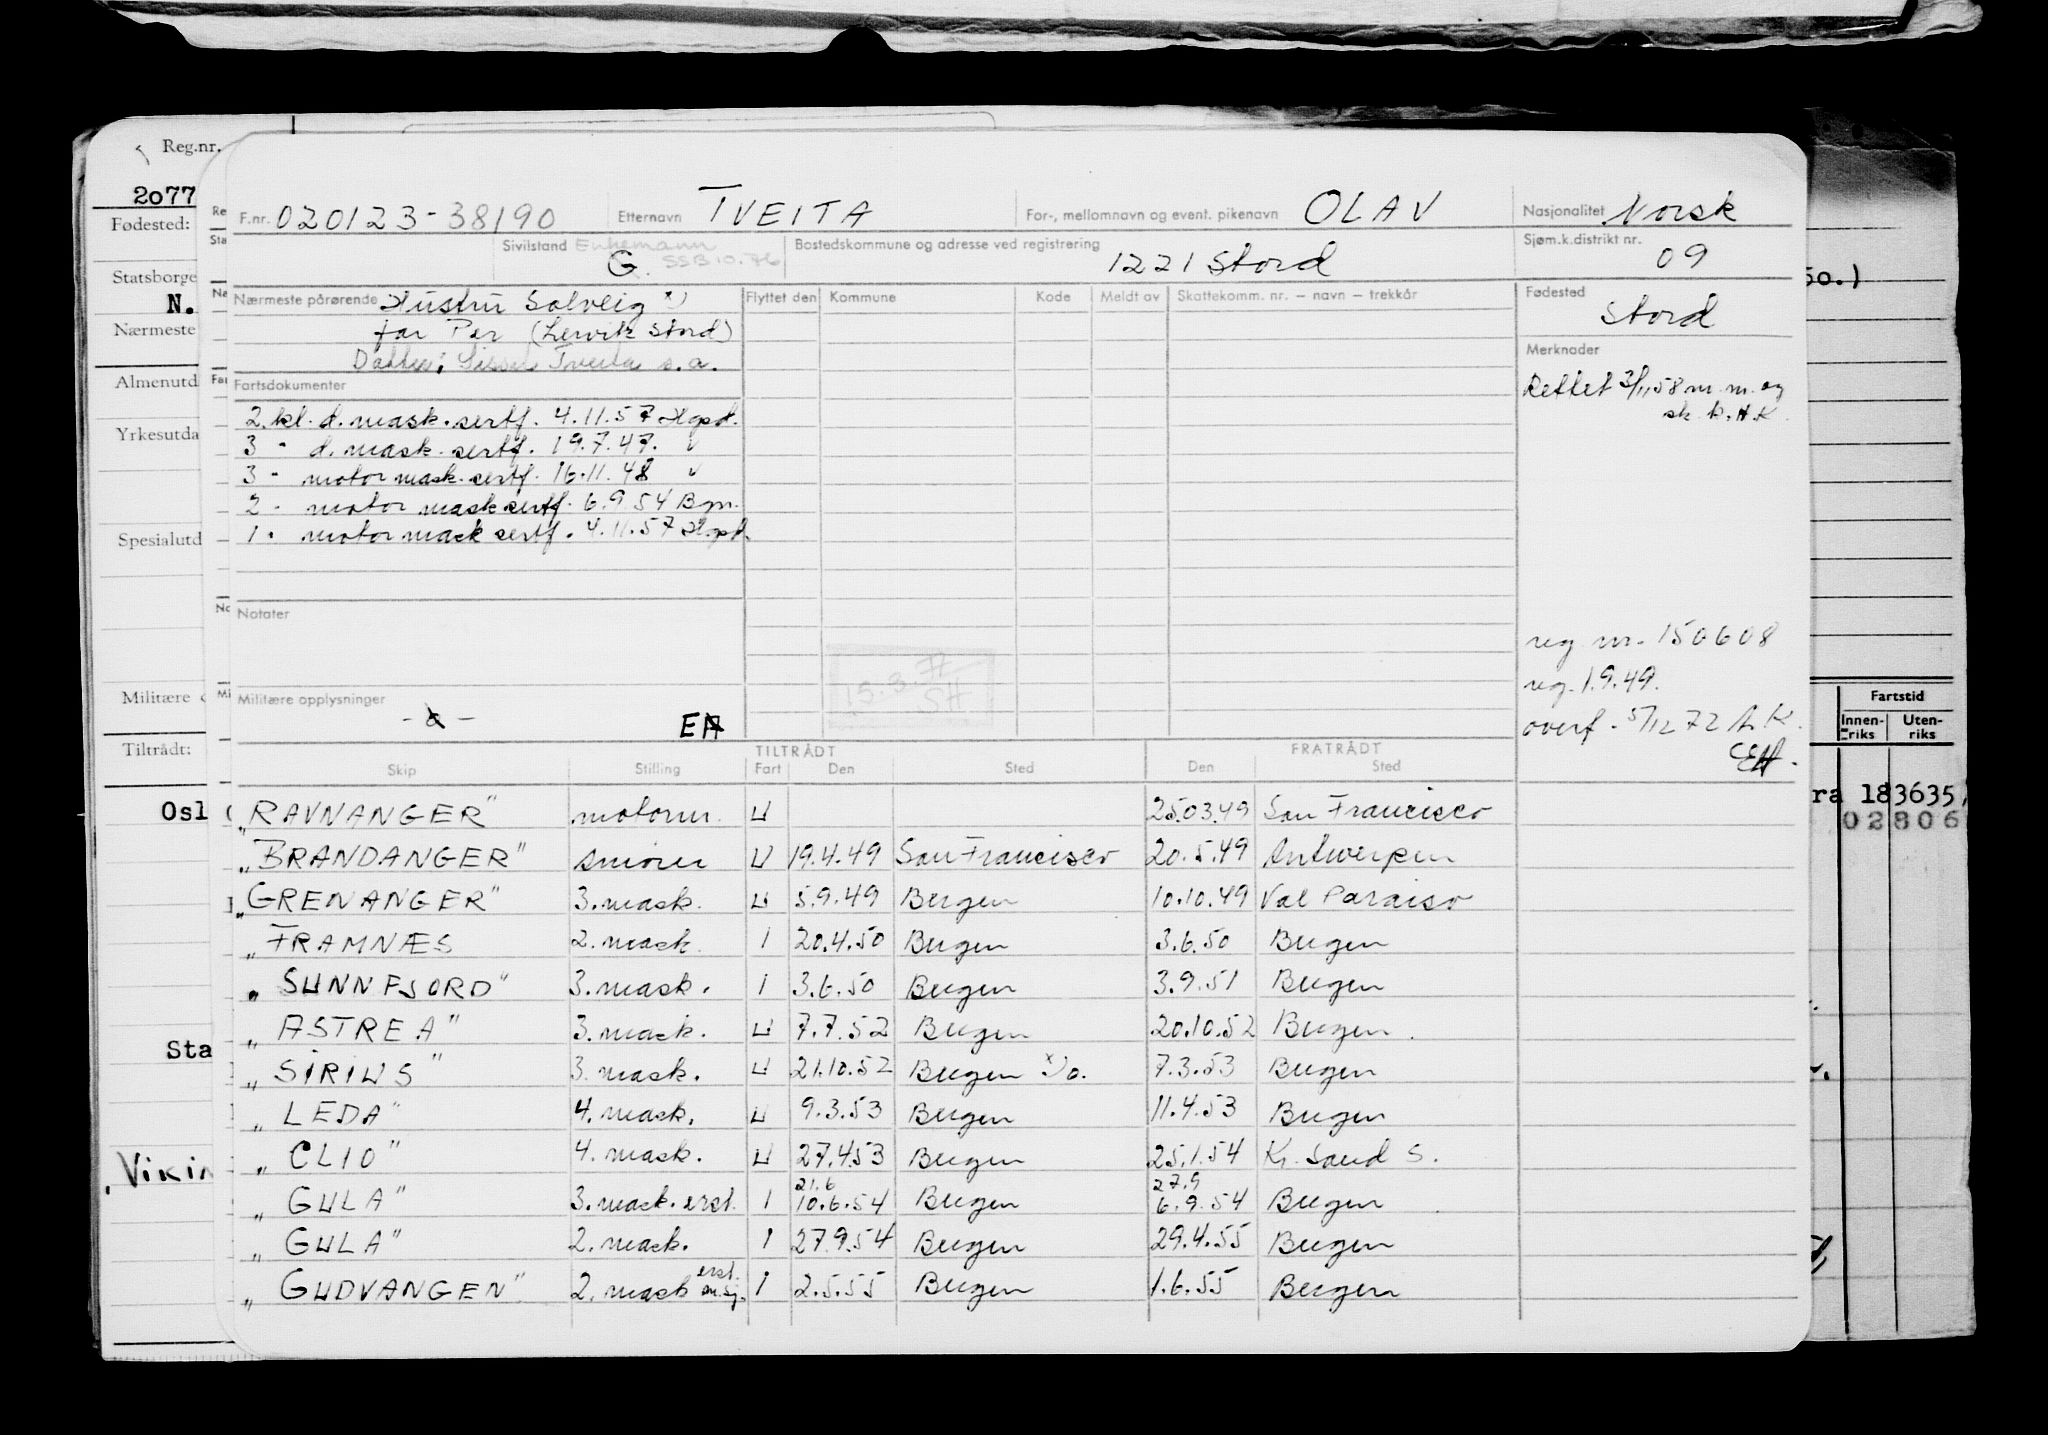 Reg.nr.
2077
Fødested:
Statsborge
N.
Nærmeste
Almenutd
Yrkesutda
Spesialutd
Militære
Tiltrådt:
Osl
Sta
Vikin
F.nr. 020123-38190 Etternavn TVEITA For-, mellomnavn og event. pikenavn OLAV Nasjonalitet Norsk
Sivilstand Enkemann SSB 10.76 G. Bostedskommune og adresse ved registrering 1221 Stord Sjøm.k.distrikt nr. 09
Nærmeste pårørende Hustru Solveig x) Flyttet den Kommune Kode Meldt av Skattekomm. nr. – navn – trekkår Fødested Stord
far Per (Lervik Stord)
Datter: Sissel Tveita s.a.
Merknader
Rettet 3/11 58 m.m. og
sk. k. H.K.
Fartsdokumenter
2. kl. d. mask. sertf. 4.11.57 Hgsd.
3 - d. mask. sertf. 19.7.47. "
3 - motor mask. sertf. 16.11.48 "
2 - motor mask sertf. 6.9 54 Bgn.
1 - motor mask sertf. 4.11.57 Hgsd.
Notater
15.3.77
SH
reg nr. 150608
reg. 1.9.49.
overf. 5/12 72 A.K.
EH.
Militære opplysninger
- o - EA
TILTRÅDT FRATRÅDT
Skip Stilling Fart Den Sted Den Sted
"RAVNANGER" motorm. U 25.03.49 San Francisco
"BRANDANGER" smører U 19.4.49 San Francisco 20.5.49 Antwerpen
"GRENANGER" 3. mask. U 5.9.49 Bergen 10.10.49 Val Paraiso
"FRAMNÆS 2. mask. I 20.4.50 Bergen 3.6.50 Bergen
"SUNNFJORD" 3. mask. I 3.6.50 Bergen 3.9.51 Bergen
"ASTREA" 3. mask. U 7.7.52 Bergen 20.10.52 Bergen
"SIRIUS" 3. mask. U 21.10.52 Bergen x)o. 7.3.53 Bergen
"LEDA" 4. mask. U 9.3.53 Bergen 11.4.53 Bergen
"CLIO" 4. mask. U 27.4.53 Bergen 25.1.54 Kr. Sand S.
21.6 27.9
"GULA" 3. mask. erst. I 10.6.54 Bergen 6.9.54 Bergen
"GULA" 2. mask. I 27.9.54 Bergen 29.4.55 Bergen
"GUDVANGEN" 2. mask erst. I 2.5.55 Bergen 1.6.55 Bergen
50.)
Fartstid
Innen-riks Uten-riks
ra 183635,
02806